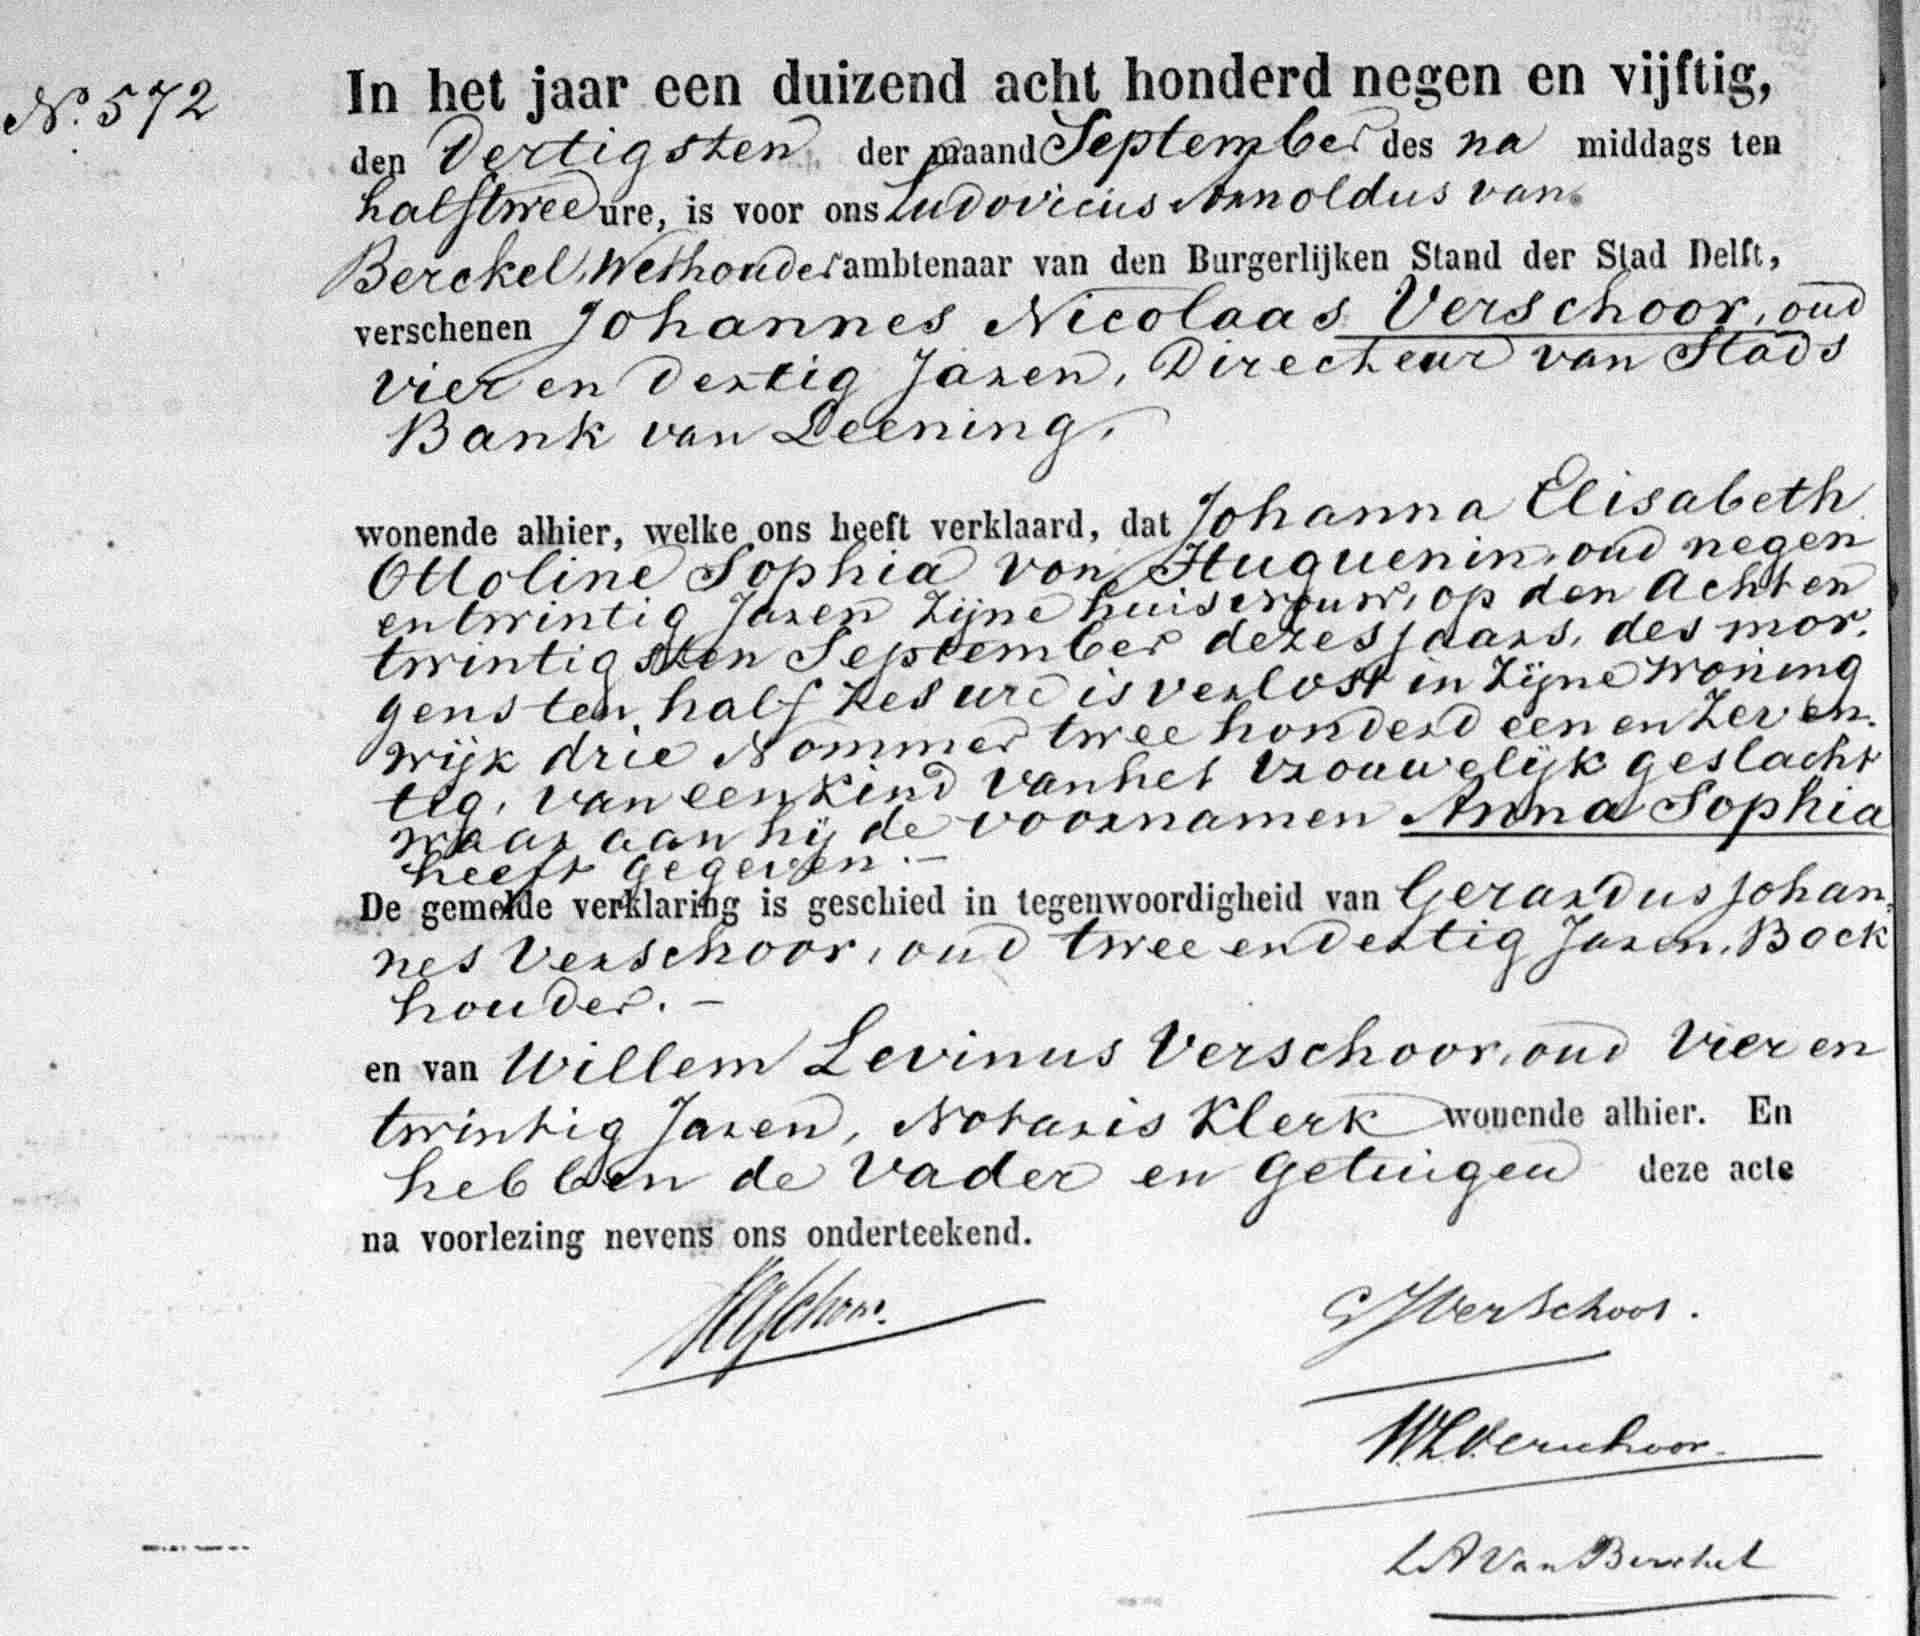 N.º 572
In het jaar een duizend acht honderd negen en vijftig,
den Dertigsten der maand September des na middags ten
half twee ure, is voor ons Ludovicus Arnoldus van
Berckel, Wethouder ambtenaar van den Burgerlijken Stand der Stad Delft,
verschenen Johannes Nicolaas Verschoor, oud
vier en dertig Jaren, Directeur van Stads
Bank van Leening,
wonende alhier, welke ons heeft verklaard, dat Johanna Elisabeth
Ottoline Sophia von Huguenin, oud negen
en twintig Jaren zijne huisvrouw, op den Acht en
twintigsten September dezes jaars, des mor-
gens ten half zes ure is verlost in zijne woning
wijk drie Nommer twee honderd een en zeven-
tig, van een kind van het vrouwelijk geslacht
waar aan hij de voornamen Anna Sophia
heeft gegeven.—
De gemelde verklaring is geschied in tegenwoordigheid van Gerardus Johan-
nes Verschoor, oud twee en dertig Jaren, Boek
houder.—
en van Willem Levinus Verschoor, oud Vier en
twintig Jaren, Notaris Klerk wonende alhier. En
hebben de Vader en Getuigen deze acte
na voorlezing nevens ons onderteekend.
GJ Verschoor.
W.L. Verschoor.
LA Van Berckel